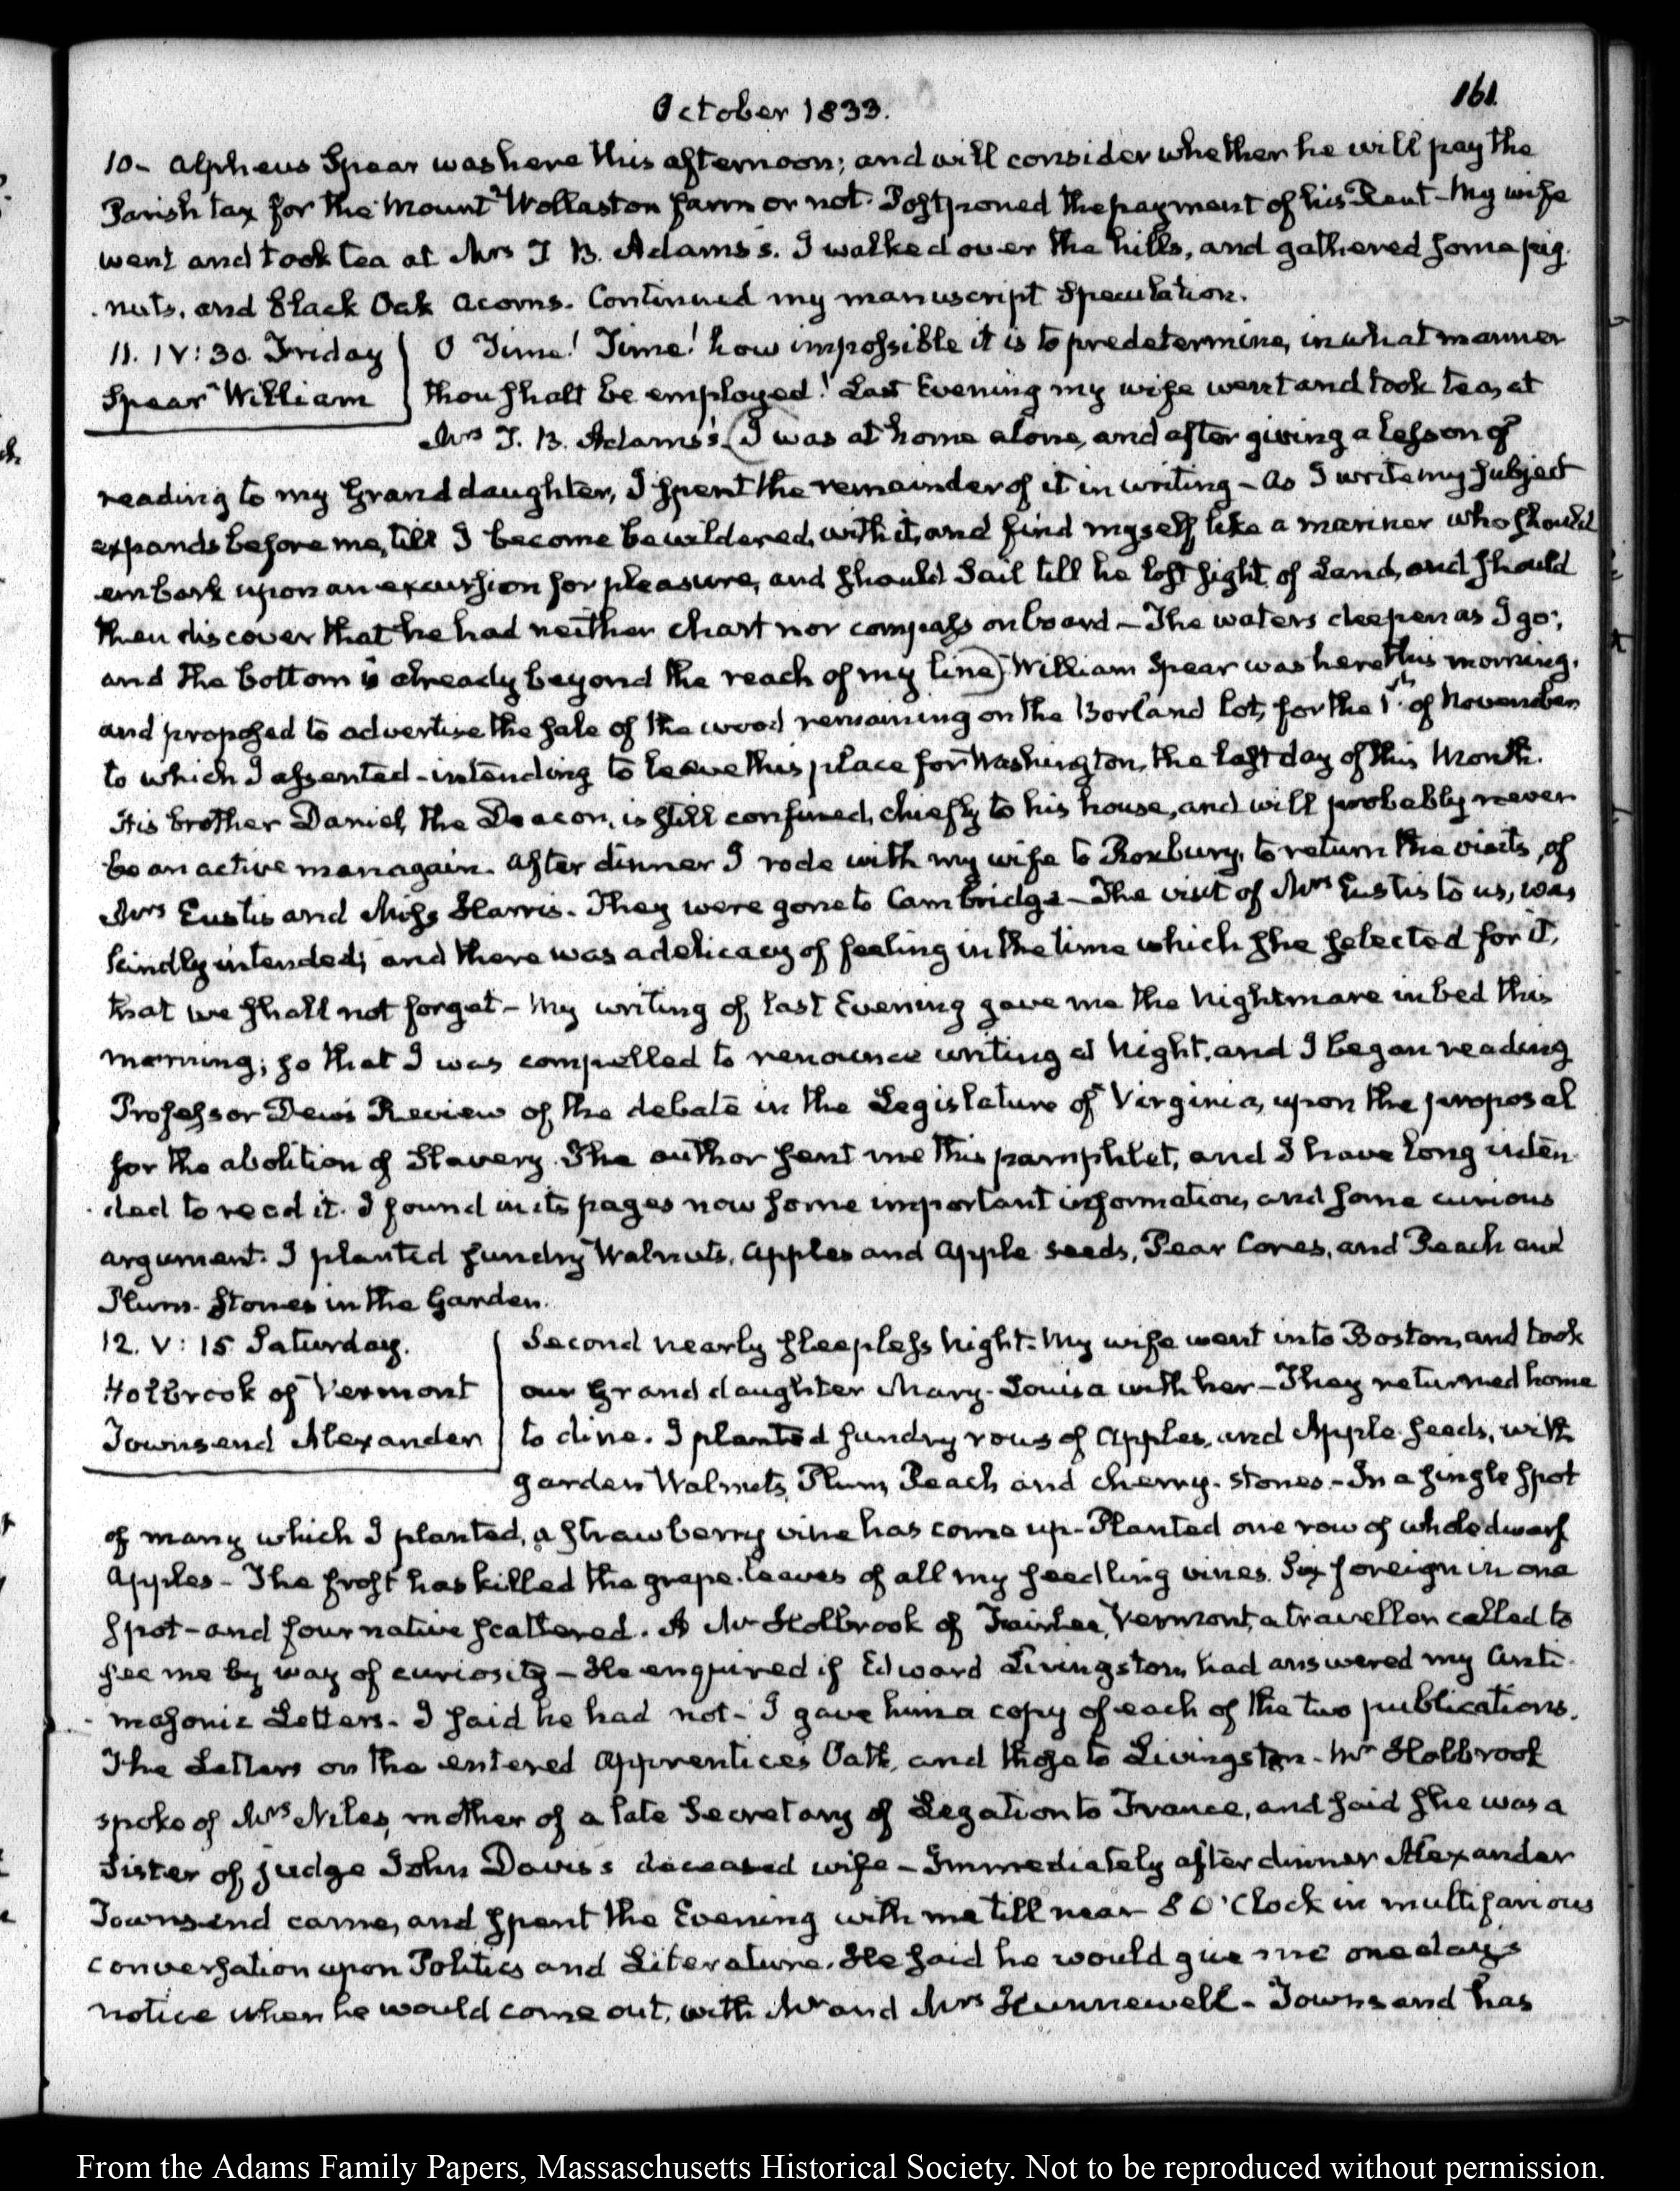 October 1833.
161.
10- Alpheus Spear was here this afternoon; and will consider whether he will pay the
Parish tax for the Mount-Wollaston farm or not. Postponed the payment of his Rent - My wife
went and took tea at Mrs T. B. Adams's. I walked over the hills, and gathered some pig-
nuts, and Black Oak Acorns. Continued my manuscript Speculation.
11. IV: 30. Friday
Spear William
O Time! Time! how impossible it is to predetermine, in what manner
thou shalt be employed! Last Evening my wife went and took tea, at
Mrs T. B. Adams's. (I was at home alone, and after giving a lesson of
reading to my Grand daughter, I spent the remainder of it in writing - As I write my subject
expands before me, till I become bewildered, with it, and find myself like a mariner who should
embark upon an excursion for pleasure, and should sail till he lost sight of Land, and should
then discover that he had neither chart nor compass on board - The waters deepen as I go;
and the bottom is already beyond the reach of my line) William Spear was here this morning,
and proposed to advertise the sale of the wood remaining on the Borland lot, for the 1st of November
to which I assented - intending to leave this place for Washington, the last day of this Month.
His brother Daniel, the Deacon, is still confined, chiefly to his house, and will probably never
be an active man again. After dinner I rode with my wife to Roxbury, to return the visits, of
Mrs Eustis and Miss Harris. They were gone to Cambridge - The visit of Mrs Eustis to us, was
kindly intended; and there was a delicacy of feeling in the time which she selected for it,
that we shall not forget - My writing of last Evening gave me the Nightmare in bed this
morning; so that I was compelled to renounce writing at Night, and I began reading
Professor Dew's Review of the debate in the Legislature of Virginia, upon the proposal
for the abolition of Slavery. The author sent me this pamphlet, and I have long inten-
ded to read it. I found in its pages now some important information, and some curious
argument. I planted sundry Walnuts, Apples and Apple seeds, Pear Cores, and Peach and
Plum-stones in the Garden.
12. V: 15 Saturday.
Holbrook of Vermont
Townsend Alexander
Second nearly sleepless Night. My wife went into Boston, and took
our Grand daughter Mary-Louisa with her - They returned home
to dine. I planted sundry rows of Apples, and Apple-seeds, with
garden Walnuts, Plum, Peach and cherry-stones - In a single spot
of many which I planted, a strawberry vine has come up - Planted one row of whole dwarf
Apples - The frost has killed the grape-leaves of all my seedling vines. Six foreign in one
spot - and four native scattered. A Mr Holbrook of Fairlee, Vermont, a traveller called to
see me by way of curiosity - He enquired if Edward Livingston, had answered my Anti-
masonic Letters - I said he had not - I gave him a copy of each of the two publications.
The Letters on the entered Apprentices Oath, and those to Livingston - Mr Holbrook
spoke of Mrs Niles, mother of a late Secretary of Legation to France, and said she was a
Sister of Judge John Davis's deceased wife - Immediately after dinner Alexander
Townsend came, and spent the Evening with me till near 8 O'Clock in multifarious
conversation upon Politics and Literature. He said he would give me one day's
notice when he would come out, with Mr and Mrs Hunnewell - Townsend has
From the Adams Family Papers, Massachusetts Historical Society. Not to be reproduced without permission.